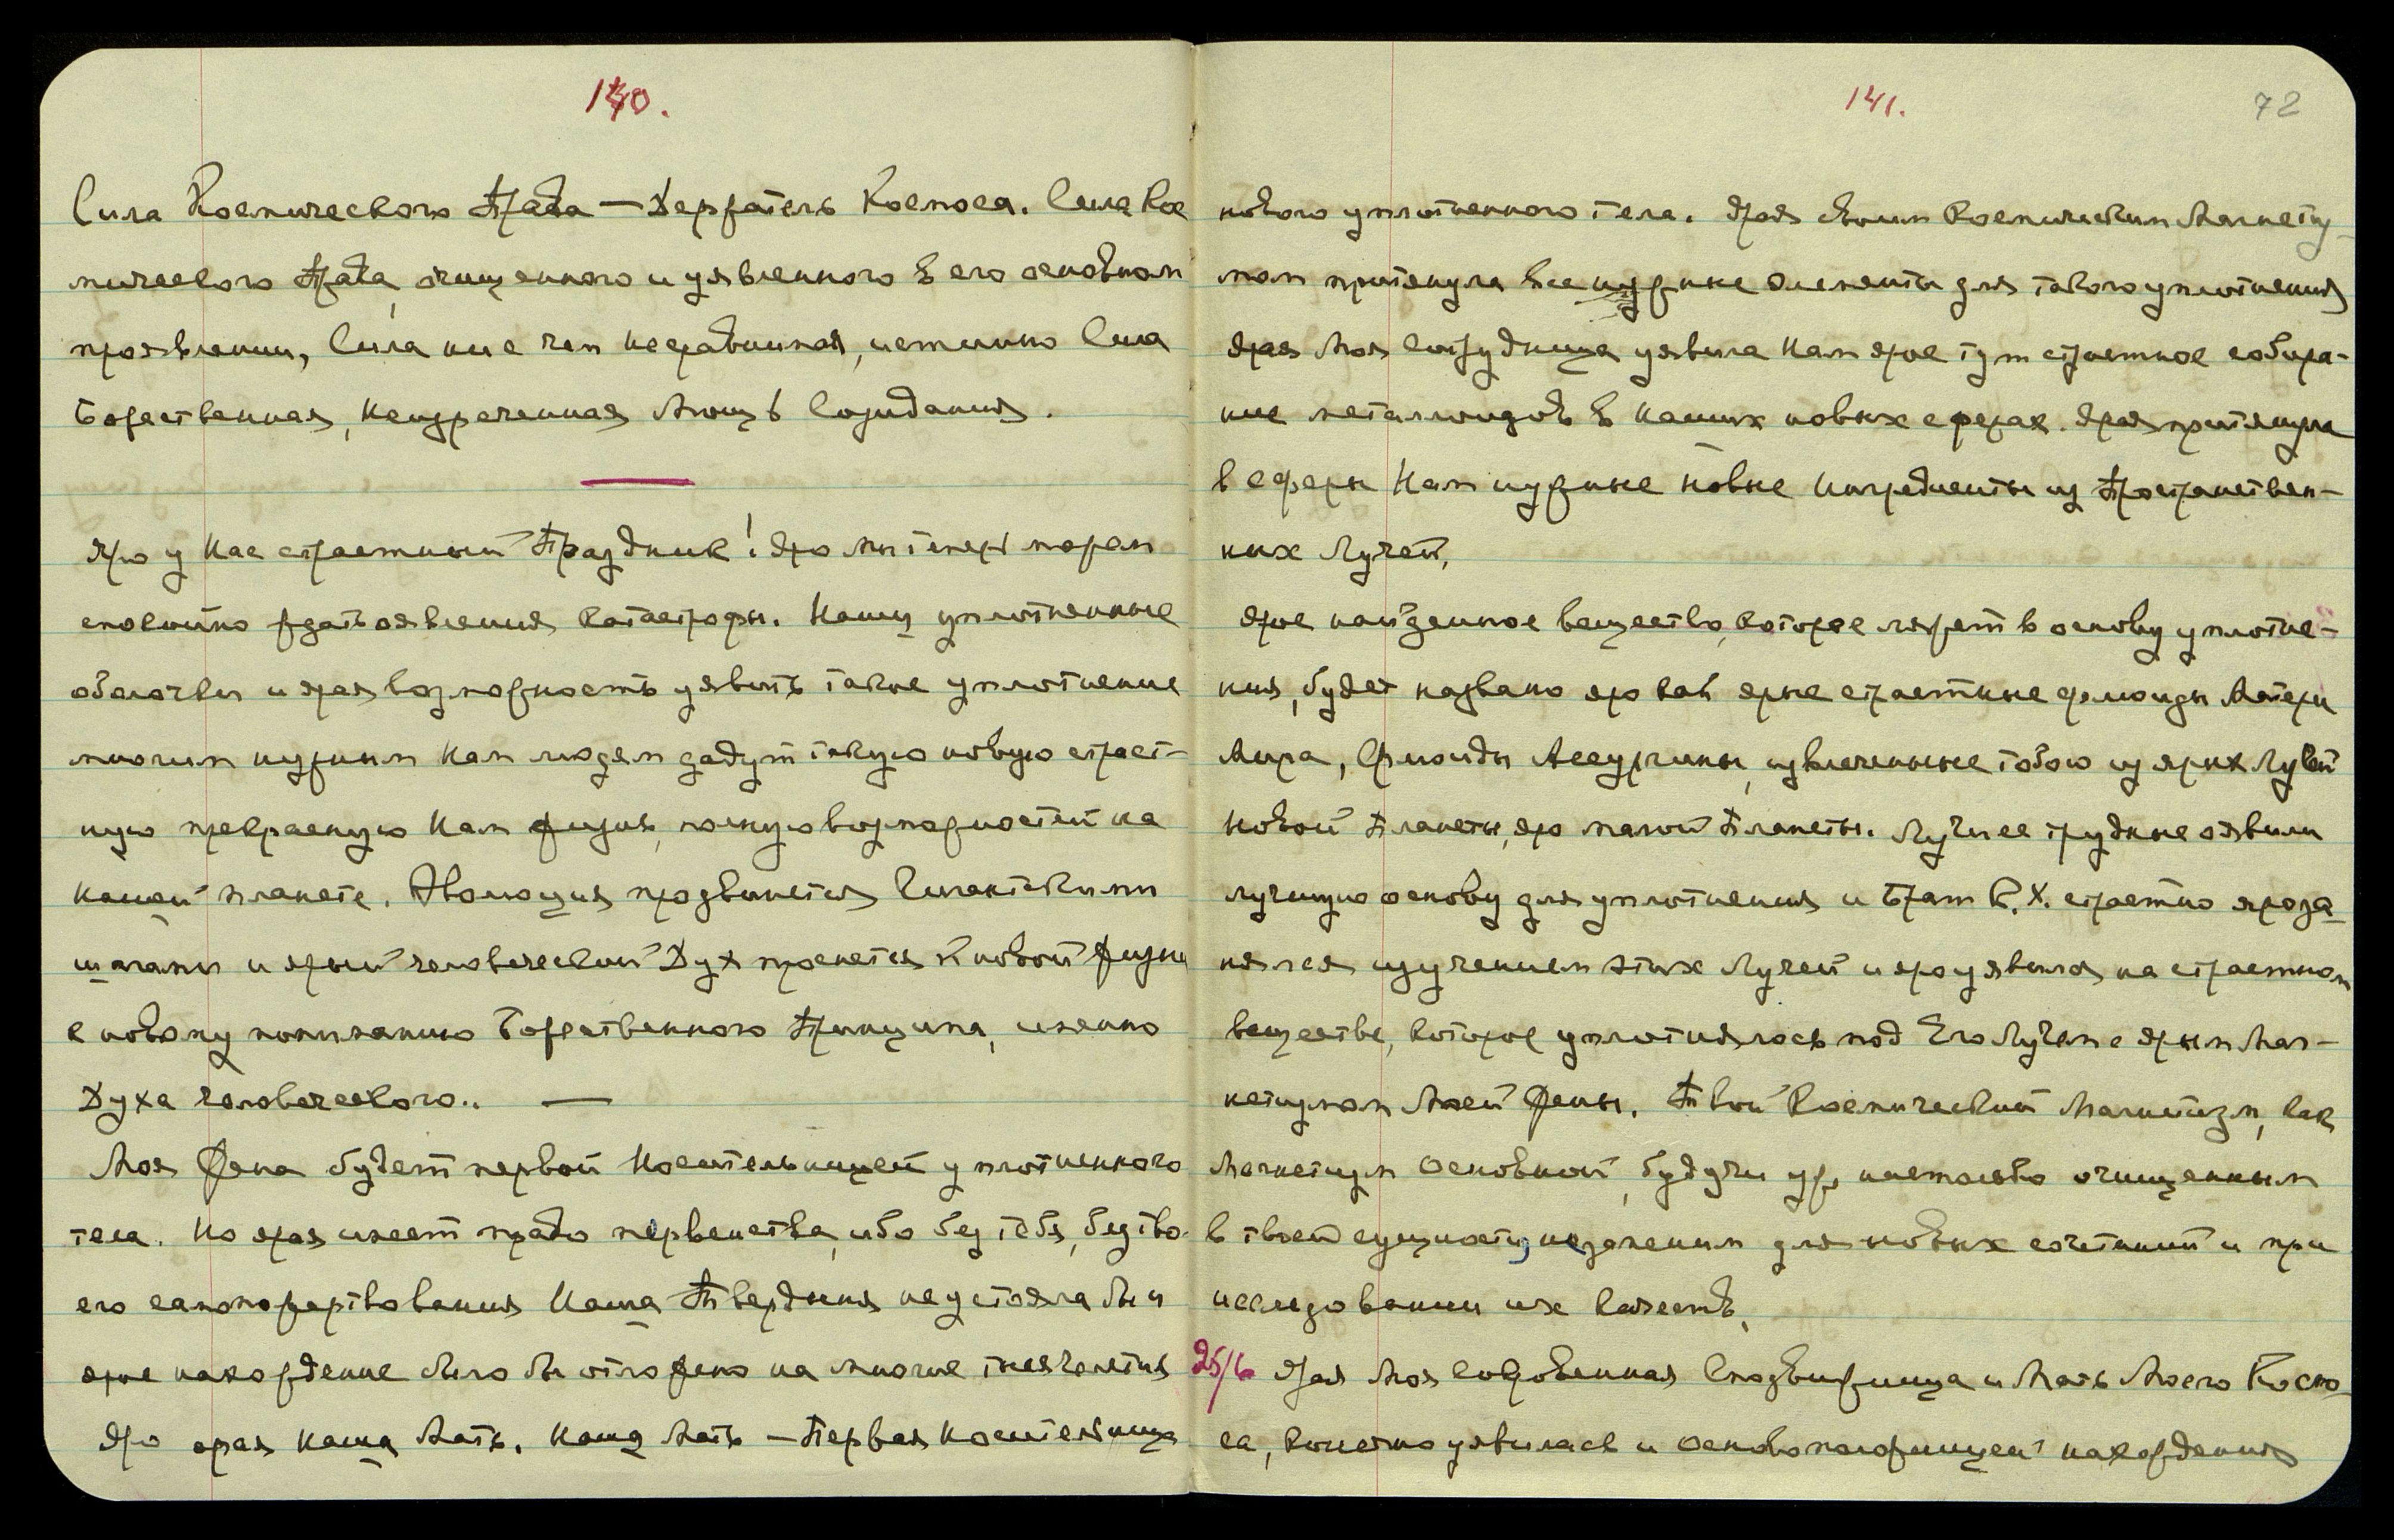 140.
Сила Космического Права — Держатель Космоса. Сила Кос
мического Права, очищенного и уявленного в его основном
проявлении, Сила ни с чем несравнимая, истинно Сила
Божественная, Неизреченная Мощь Созидания.
Яро у Нас страстный Праздник! Яро Мы теперь можем
спокойно ждать оявления Катастрофы. Наши уплотненные
оболочки и ярая возможность уявить такое уплотнение
многим нужным Нам людям дадут такую новую страст-
ную прекрасную Нам жизнь, полную возможностей на
нашей планете. Эволюция продвинется Гигантскими
шагами и ярый человеческий Дух проснется к новой жизни
к новому пониманию Божественного Принципа, именно
Духа человеческого.. —
Моя Жена будет первой Носительницей уплотненного
тела. Но ярая имеет право первенства, ибо без тебя, без тво-
его самопожертвования Наша Твердыня не устояла бы и
ярое нахождение было бы отложено на многие тысячелетия
Яро ярая Наша Мать. Наша Мать — Первая Носительница
141.
72
нового уплотненного тела. Ярая своим Космическим Магнетиз-
мом притянула все нужные элементы для такого уплотнения
Ярая Моя Сотрудница уявила Нам ярое тут страстное собира-
ние металлоидов в Наших новых сферах. Ярая притянула
в сферы Нам нужные новые Ингредиенты из Пространствен-
ных Лучей.
Ярое найденное вещество, которое ляжет в основу уплотне-
ния, будет названо яро как ярые страстные флюиды Матери
Мира, Флюиды Ассургины, извлеченные тобою из ярых Лучей
Новой Планеты, яро малой Планеты. Лучи ее трудные оявили
лучшую основу для уплотнения и Брат К.Х. страстно яро за-
нялся изучением этих Лучей и яро уявился на страстном
веществе, которое уплотнялось под Его Лучом с ярым Маг-
нетизмом Моей Жены. Твой Космический Магнетизм, как
Магнетизм Основной, будучи уже настолько очищенным
в твоей сущности, незаменим для новых сочетаний и при
исследовании их качеств.
25/6 Ярая Моя Сокровенная Сподвижница и Мать Моего Космо-
са, конечно уявилась и основоположницей нахождения